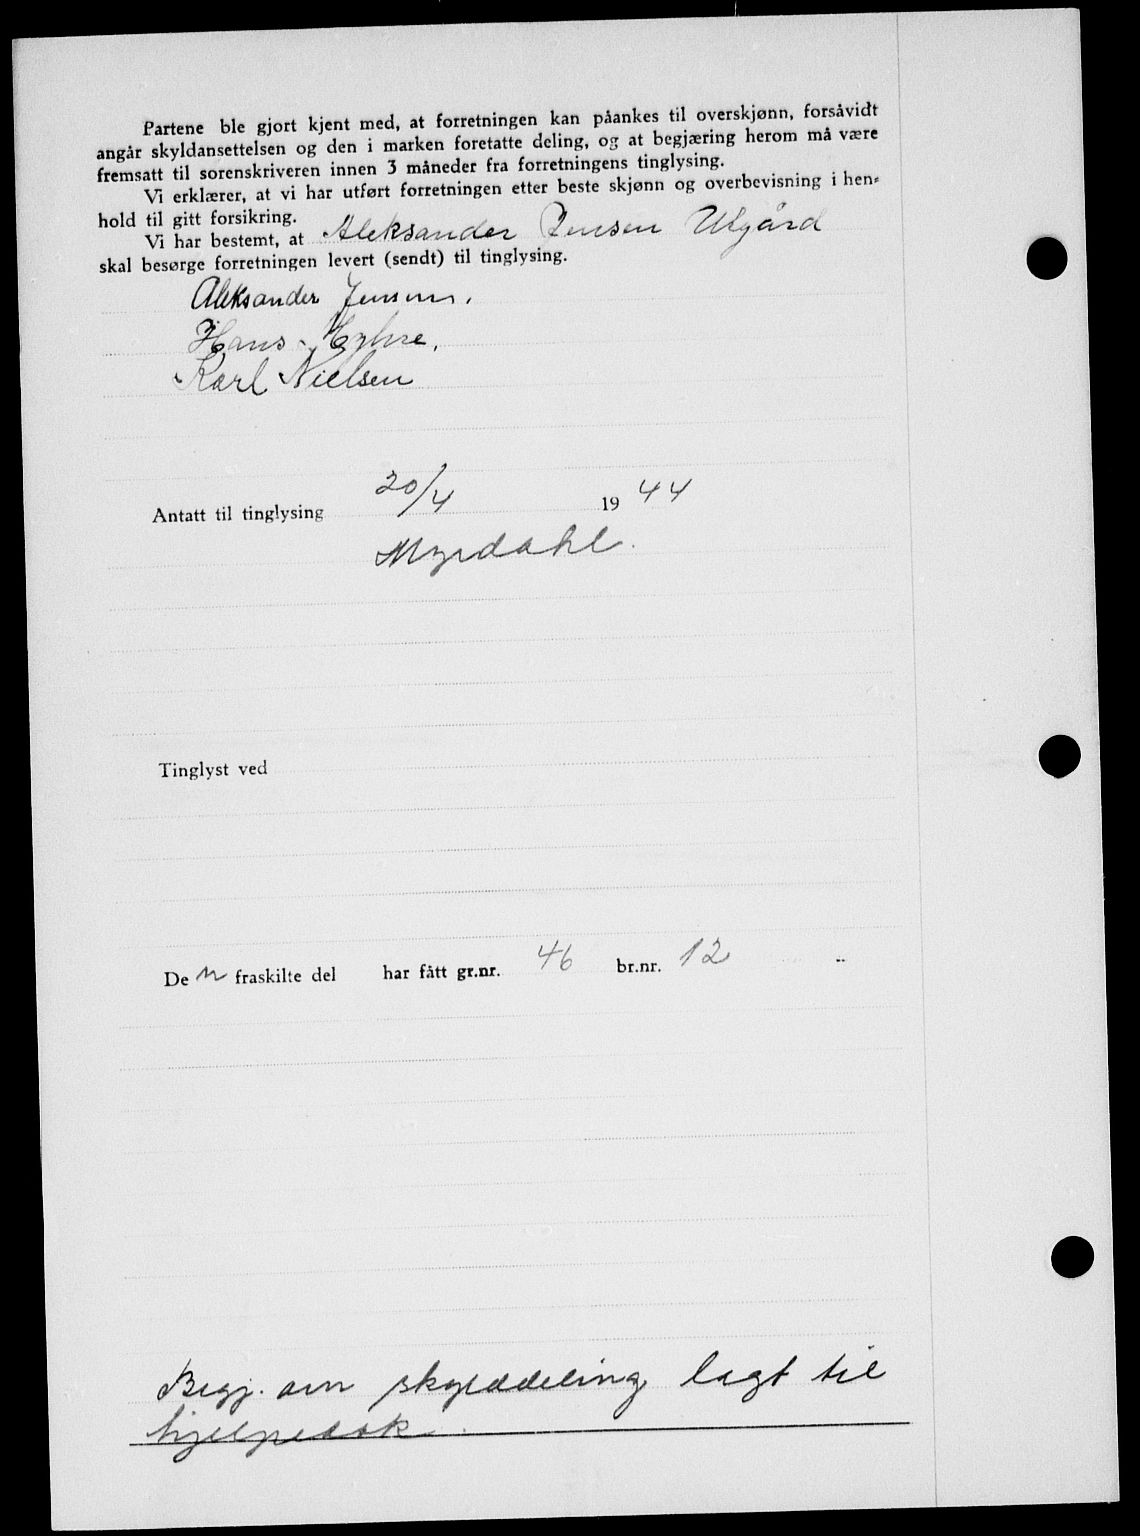 Partene ble gjort kjent med, at forretningen kan påankes til overskjønn, forsåvidt
angår skyldansettelsen og den i marken foretatte deling, og at begjæring herom må være
fremsatt til sorenskriveren innen 3 måneder fra forretningens tinglysing.
Vi erklærer, at vi har utført forretningen etter beste skjønn og overbevisning i hen-
hold til gitt forsikring.
Vi har bestemt, at Aleksander Jensen Ulgård
skal besørge forretningen levert (sendt) til tinglysing.
Aleksander Jensen.
Hans
Karl Nielsen
Antatt til tinglysing 20/4 1944
Myrdahl.
Tinglyst ved
De n fraskilte del har fått gr.nr. 46 br.nr. 12
Begj. om skylddeling lagt til
hjelpedok.